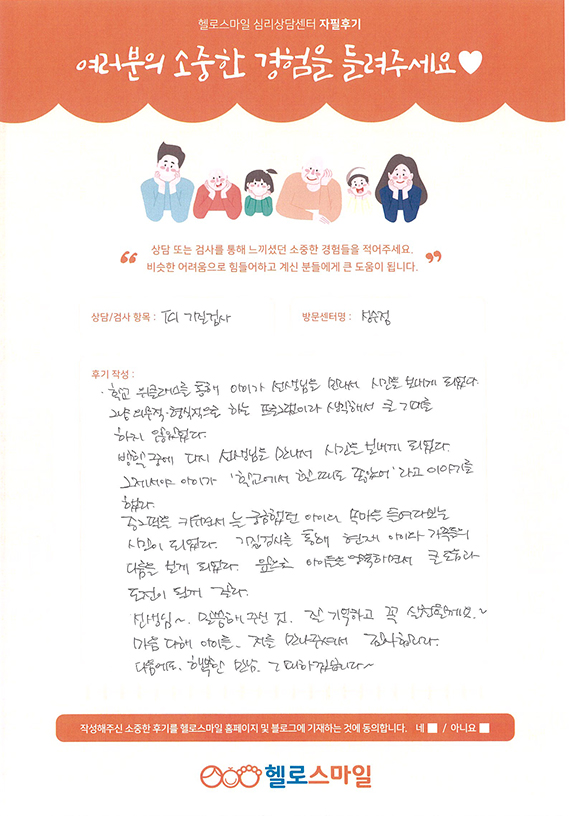 헬로스마일 심리상담센터 자필후기
여러분의 소중한 경험을 들려주세요♥
상담 또는 검사를 통해 느끼셨던 소중한 경험들을 적어주세요.
비슷한 어려움으로 힘들어하고 계신 분들에게 큰 도움이 됩니다.
상담/검사 항목 : TCI 기질검사
방문센터명 : 성수점
후기 작성 :
· 학교 위클래스를 통해 아이가 선생님을 만나서 시간을 보내게 되었다.
그냥 의무적·형식적으로 하는 프로그램이라 생각해서 큰 기대를
하지 않았었다.
방학 중에 다시 선생님을 만나서 시간을 보내게 되었다.
그제서야 아이가 '학교에서 했을 때도 좋았어' 라고 이야기를
했다.
중2딸을 키우면서 늘 궁금했던 아이의 속마음을 들여다보는
시간이 되었다. 기질검사를 통해 현재 아이와 가족들의
마음을 보게 되었다. 앞으로 아이들을 양육하면서 큰 도움과
도전이 될거 같다.
선생님~. 말씀해 주신 것. 잘 기억하고 꼭 실천할게요.~
마음 다해 아이를, 저를 만나주셔서 감사합니다.
다음에도, 행복한 만남. 기대하겠습니다~
작성해주신 소중한 후기를 헬로스마일 홈페이지 및 블로그에 기재하는 것에 동의합니다. 네 / 아니요
헬로스마일